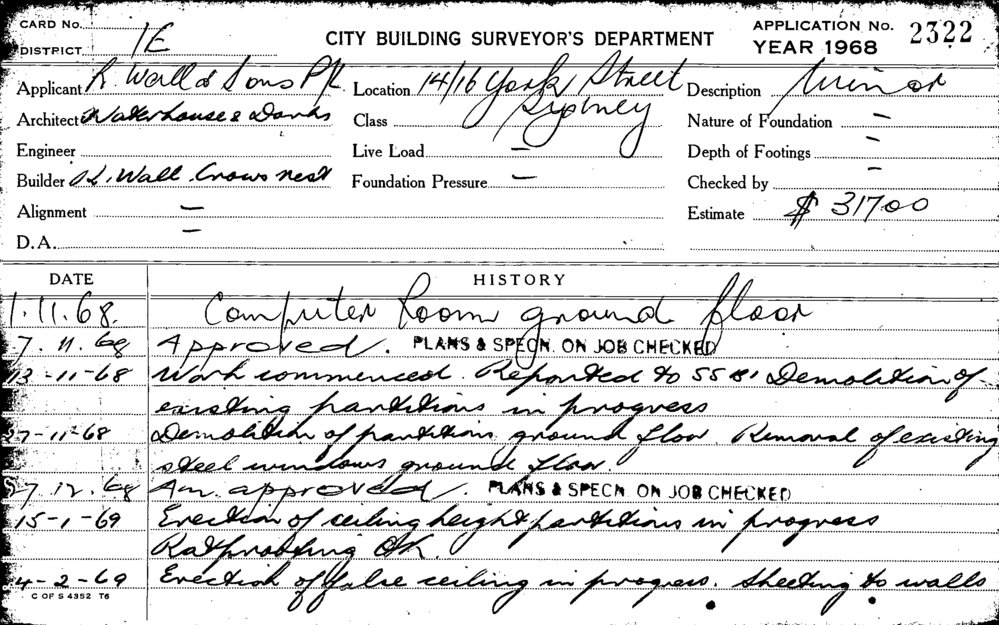 CARD No.
DISTRICT 1E
CITY BUILDING SURVEYOR'S DEPARTMENT
APPLICATION No. 2322
YEAR 1968
Applicant R. Wall & Sons P/L
Location 14/16 York Street
Sydney
Description Minor
Architect Waterhouse & Danks
Class
Nature of Foundation —
Engineer
Live Load —
Depth of Footings —
Builder Wall. Crows nest
Foundation Pressure —
Checked by —
Alignment —
Estimate $ 31700
D.A. —
DATE HISTORY
1.11.68. Computer Room ground floor
7.11.68 Approved. PLANS & SPECN. ON JOB CHECKED
13-11-68 Work commenced. Reported to SSB. Demolition of
existing partitions in progress
27-11-68 Demolition of partitions ground floor. Removal of existing
steel windows ground floor.
27.12.68 Am. approved. PLANS & SPECN ON JOB CHECKED
15-1-69 Erection of ceiling height partitions in progress
Ratproofing OK.
4-2-69 Erection of false ceiling in progress. Sheeting to walls
C OF S 4352 T6